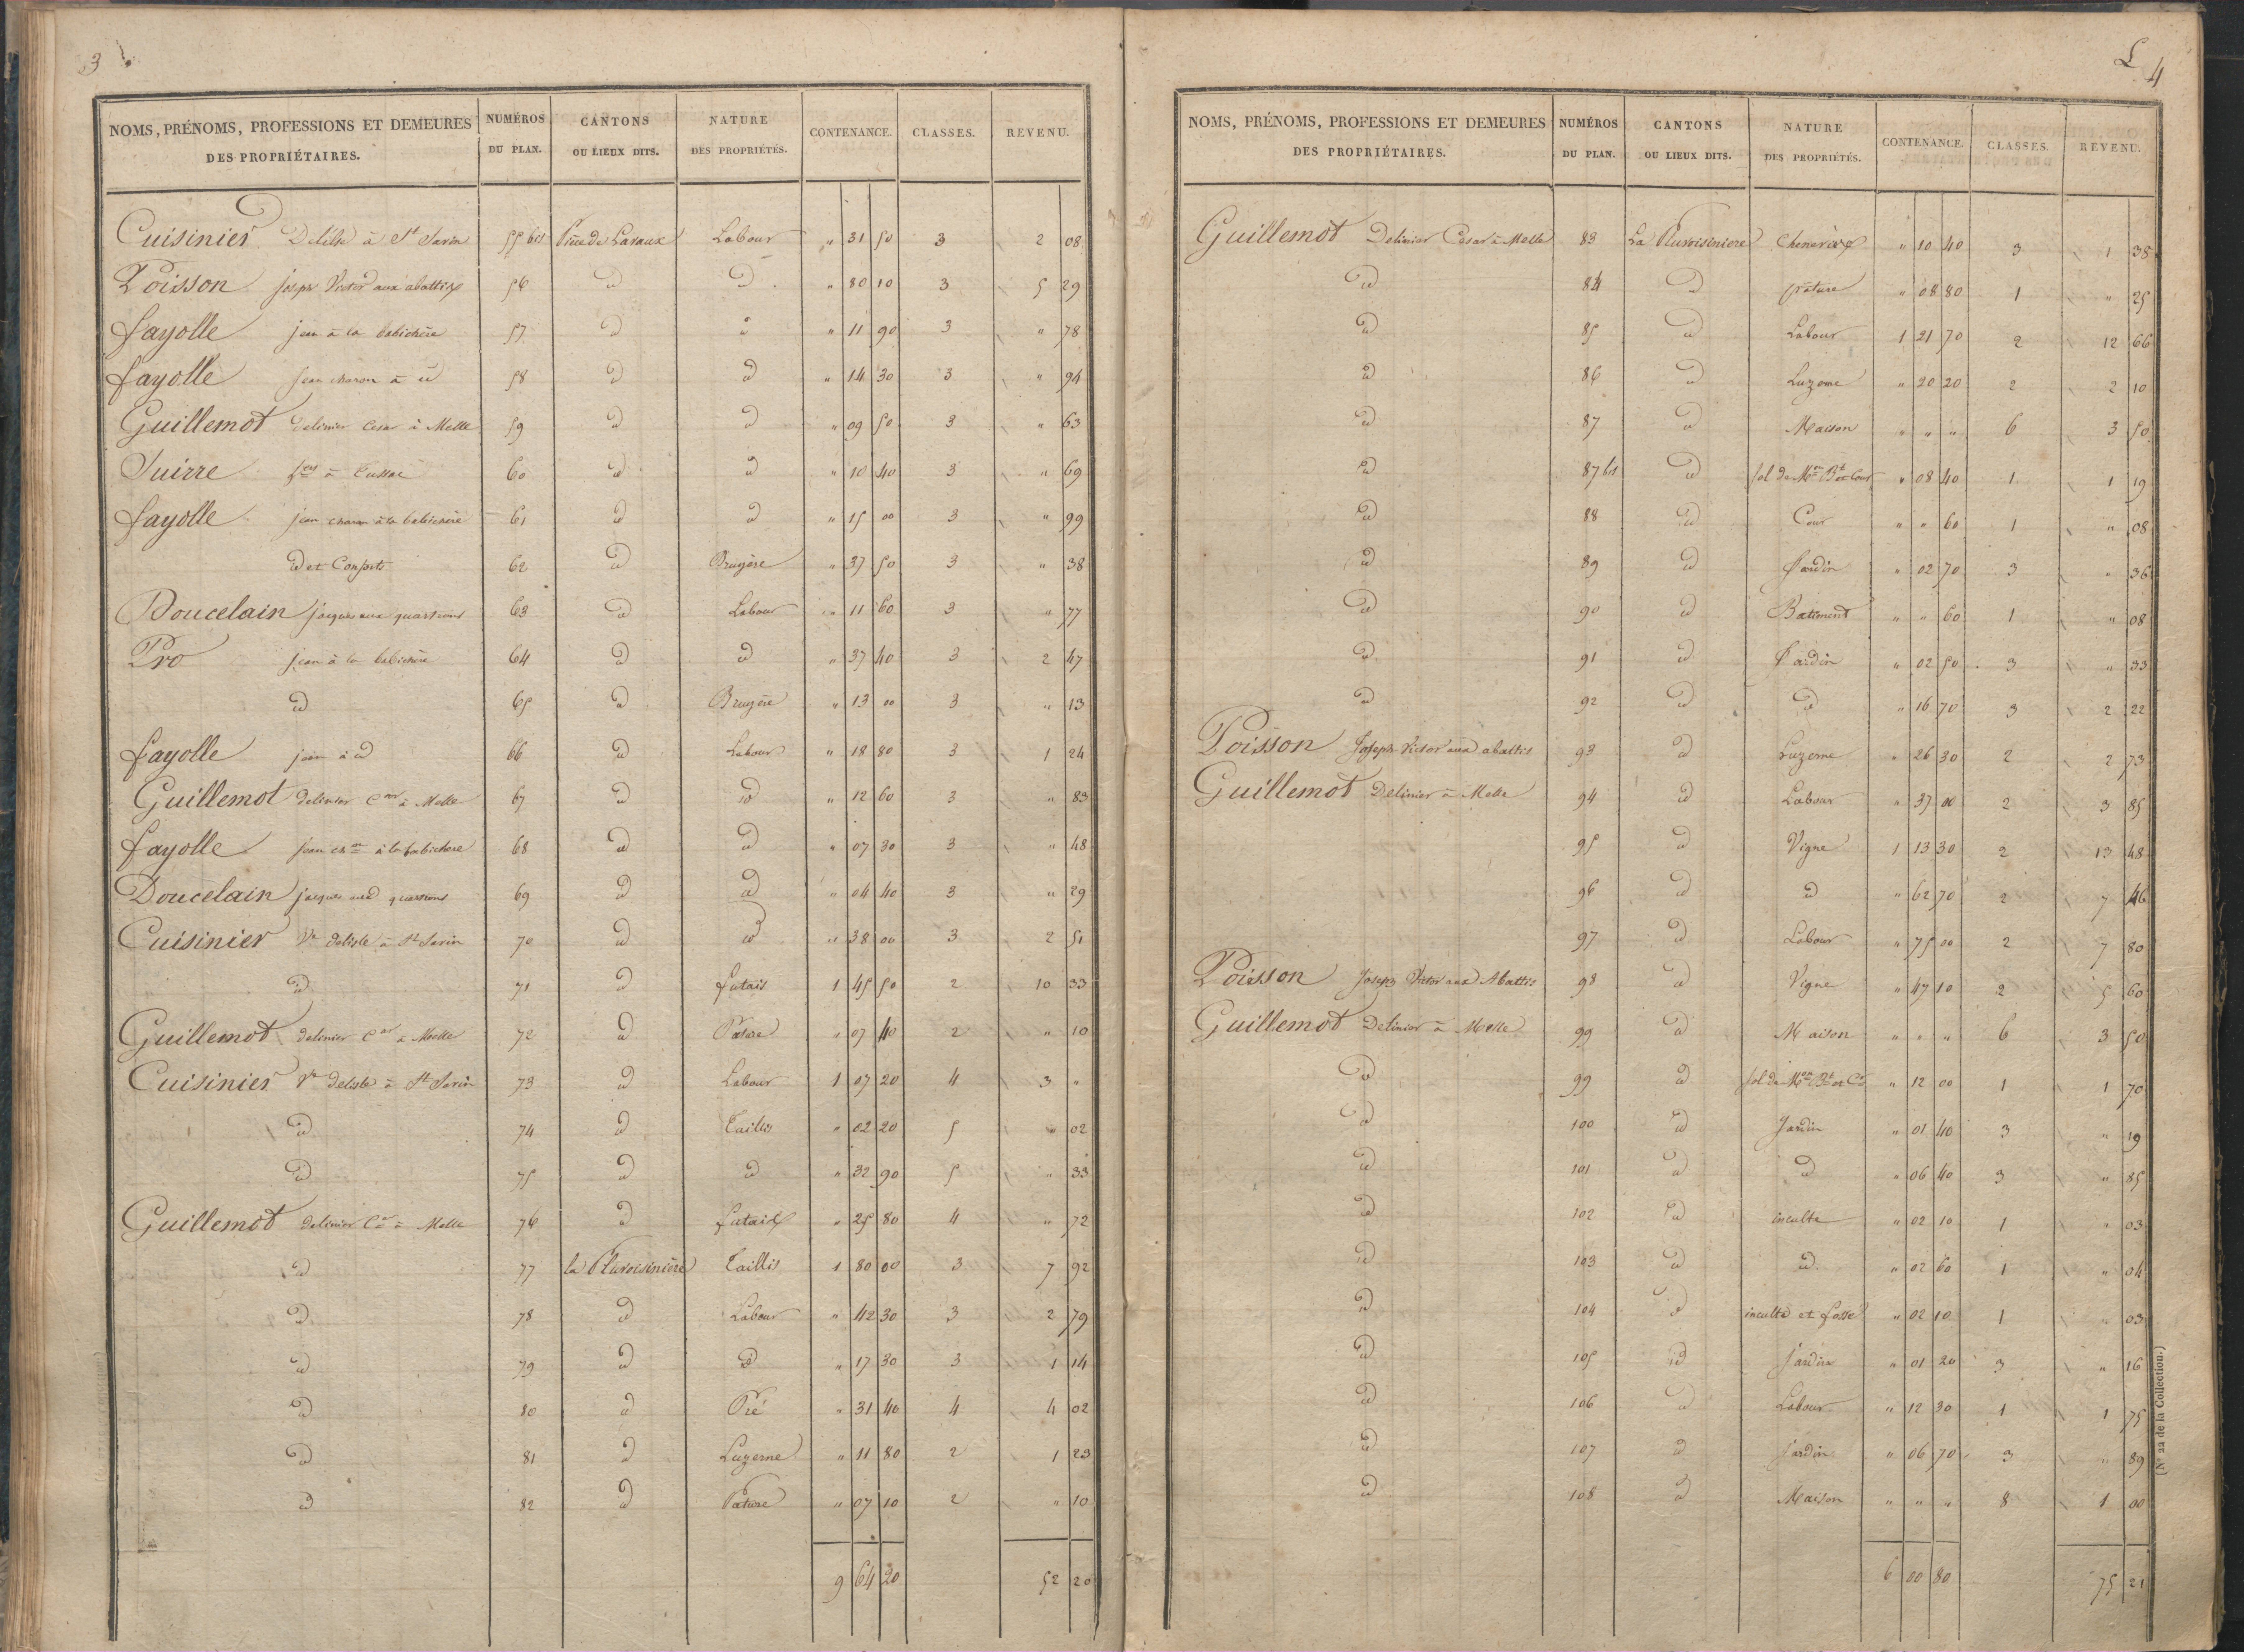 3
NOMS, PRÉNOMS, PROFESSIONS ET DEMEURES DES PROPRIÉTAIRES. NUMÉROS DU PLAN. CANTONS OU LIEUX DITS. NATURE DES PROPRIÉTÉS. CONTENANCE. CLASSES. REVENU.
Cuisinier Delisle à St Savin 55 bis Labour " 31 50 3 2 08
Poisson joseph Victor aux abattix 56 id id " 80 10 3 5 29
fayolle jean à la babichère 57 id id " 11 90 3 " 78
fayolle jean charon à id 58 id id " 14 30 3 " 94
Guillemot delinier Cesar à Melle 59 id id " 09 50 3 " 63
Suirre fcois à Cussac 60 id id " 10 40 3 " 69
fayolle jean charon à la babichère 61 id id " 15 00 3 " 99
id et Consorts 62 id Bruyère " 37 50 3 " 38
Doucelain jacques aux quartrons 63 id Labour " 11 60 3 " 77
Pro jean à la babichère 64 id id " 37 40 3 2 47
id 65 id Bruyère " 13 00 3 " 13
fayolle jean à id 66 id Labour " 18 80 3 1 24
Guillemot delinier Car à Melle 67 id id " 12 60 3 " 83
fayolle jean chon à la babichere 68 id id " 07 30 3 " 48
Doucelain jacques aux quartrons 69 id id " 04 40 3 " 29
Cuisinier Ve delisle à St Savin 70 id id " 38 00 3 2 51
id 71 id futais 1 45 50 2 10 33
Guillemot delinier Car à Melle 72 id Pature " 07 40 2 " 10
Cuisinier Ve delisle à St Savin 73 id Labour 1 07 20 4 3 "
id 74 id Taillis " 02 20 5 " 02
id 75 id id " 32 90 5 " 33
Guillemot delinier Car à Melle 76 id futaix " 25 80 4 " 72
id 77 la Pluvoisinière Taillis 1 80 00 3 7 92
id 78 id Labour " 42 30 3 2 79
id 79 id id " 17 30 3 1 14
id 80 id Pré " 31 40 4 4 02
id 81 id Luzerne " 11 80 2 1 23
id 82 id Pature " 07 10 2 " 10
9 64 20 52 20
4
NOMS, PRÉNOMS, PROFESSIONS ET DEMEURES DES PROPRIÉTAIRES. NUMÉROS DU PLAN. CANTONS OU LIEUX DITS. NATURE DES PROPRIÉTÉS. CONTENANCE. CLASSES. REVENU.
Guillemot Delinier Cesar à Melle 83 La Pluvoisiniere Cheneviere " 10 40 3 1 38
id 84 id pature " 08 80 1 " 25
id 85 id Labour 1 21 70 2 12 66
id 86 id Luzerne " 20 20 2 2 10
id 87 id Maison " " " 6 3 50
id 87 bis id sol de Mon Bt et Cour " 08 40 1 1 19
id 88 id Cour " " 60 1 " 08
id 89 id Jardin " 02 70 3 " 36
id 90 id Batiment " " 60 1 " 08
id 91 id Jardin " 02 50 3 " 33
id 92 id id " 16 70 3 2 22
Poisson Joseph Victor aux abattis 93 id Luzerne " 26 30 2 2 73
Guillemot Delinier à Melle 94 id Labour " 37 00 2 3 85
95 id Vigne 1 13 30 2 13 48
96 id id " 62 70 2 7 46
97 id Labour " 75 00 2 7 80
Poisson Joseph Victor aux Abattis 98 id Vigne " 47 10 2 5 60
Guillemot Delinier à Melle 99 id Maison " " " 6 3 50
id 99 id sol de Mon Bt et Cr " 12 00 1 1 70
id 100 id Jardin " 01 40 3 " 19
id 101 id id " 06 40 3 " 85
id 102 id inculte " 02 10 1 " 03
id 103 id id " 02 60 1 " 04
id 104 id inculte et fosse " 02 10 1 " 03
id 105 id Jardin " 01 20 3 " 16
id 106 id Labour " 12 30 1 1 75
id 107 id Jardin " 06 70 3 " 89
id 108 id Maison " " " 8 1 00
6 00 80 75 21
(N° 22 de la Collection.)